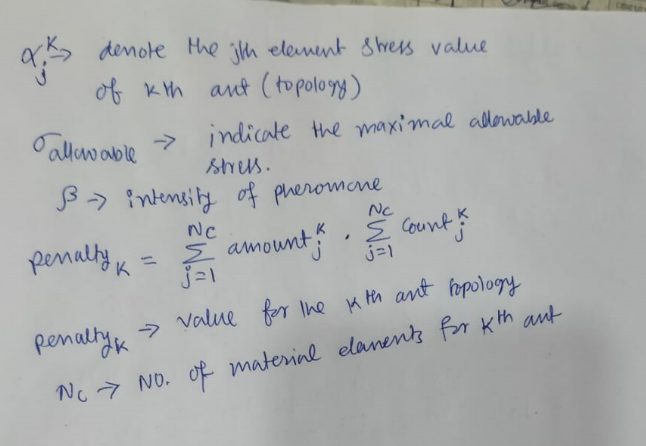 α_j^K → denote the jth element stress value
of kth ant (topology)
σ_allowable → indicate the maximal allowable
stress.
β → intensity of pheromone
penalty_K = Σ_{j=1}^{NC} amount_j^K · Σ_{j=1}^{NC} count_j^K
penalty_K → value for the kth ant topology
N_C → NO. of material elements for kth ant